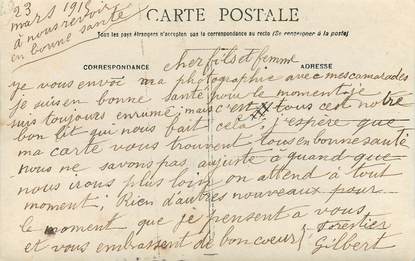 23
mars 1915
à nous revoir
en bonne santé
CARTE POSTALE
Tous les pays étrangers n'acceptent pas la correspondance au recto (Se renseigner à la poste)
CORRESPONDANCE
ADRESSE
cher fils et femme
je vous envoi ma photographie avec mes camarades
Je suis en bonne santé pour le moment je
suis toujours enrumé mais c'est tous cest notre
bon lit qui nous fait cela; j'espère que
ma carte vous trouvent tous en bonne santé
nous ne savons pas au juste à quand que
nous irons plus loin on attend à tout
moment; Rien d'autres nouveaux pour
le moment que je pensent a vous
et vous embrassent de bon coeur Forestier
Gilbert